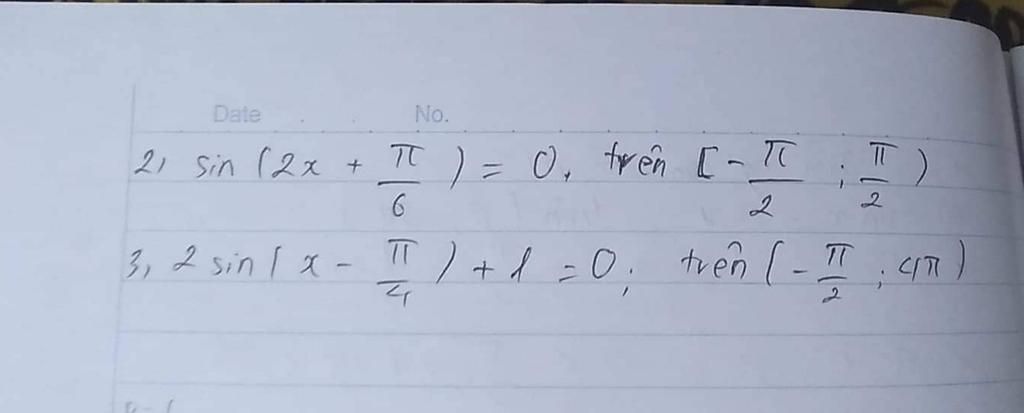 Date No.
2, sin (2x + π/6) = 0, trên [-π/2 ; π/2)
3, 2 sin( x - π/4 ) + 1 = 0; trên (-π/2 ; 4π)